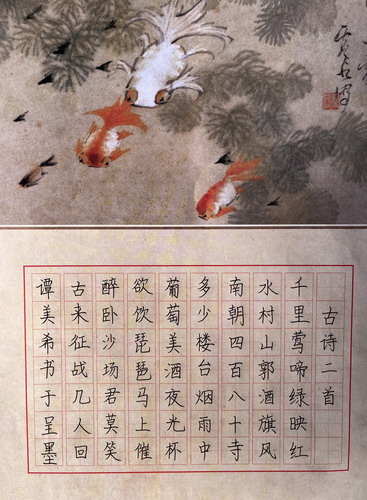 古诗二首
千里莺啼绿映红
水村山郭酒旗风
南朝四百八十寺
多少楼台烟雨中
葡萄美酒夜光杯
欲饮琵琶马上催
醉卧沙场君莫笑
古来征战几人回
谭美希书于呈墨